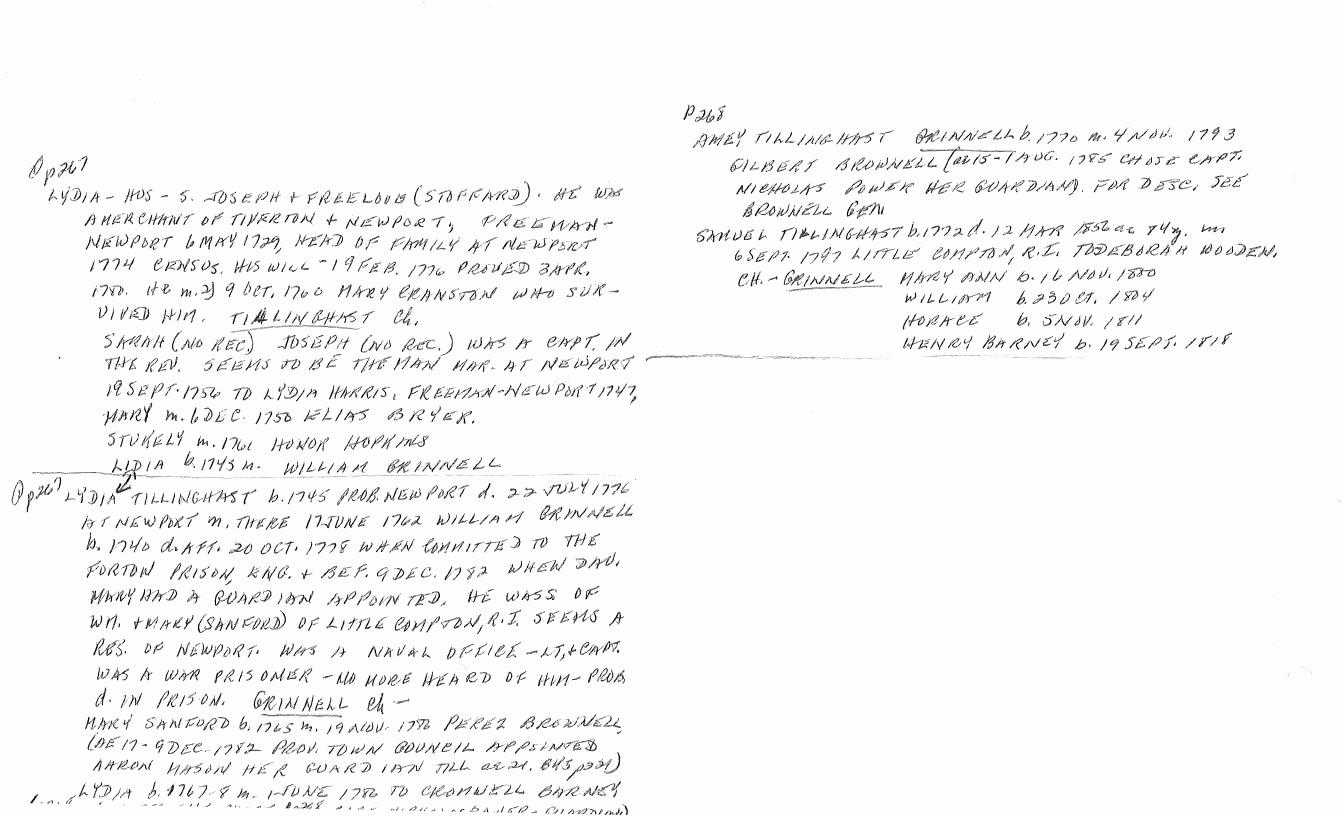 p267
LYDIA - HUS - S. JOSEPH + FREELOVE (STAFFARD). HE WAS
A MERCHANT OF TIVERTON + NEWPORT, FREEMAN -
NEWPORT 6 MAY 1729, HEAD OF FAMILY AT NEWPORT
1774 CENSUS. HIS WILL - 19 FEB. 1776 PROVED 3 APR.
1780. HE m. 2) 9 OCT. 1760 MARY CRANSTON WHO SUR-
VIVED HIM. TILLINGHAST Ch.
SARAH (NO REC) JOSEPH (NO REC.) WAS A CAPT. IN
THE REV. SEEMS TO BE THE MAN MAR. AT NEWPORT
19 SEPT. 1756 TO LYDIA HARRIS, FREEMAN - NEWPORT 1747,
MARY m. 6 DEC. 1750 ELIAS BRYER.
STUKELY m. 1761 HONOR HOPKINS
LIDIA b. 1745 m. WILLIAM GRINNELL
p267 LYDIA TILLINGHAST b. 1745 PROB. NEWPORT d. 22 JULY 1776
AT NEWPORT m. THERE 17 JUNE 1762 WILLIAM GRINNELL
b. 1740 d. AFT. 20 OCT. 1778 WHEN COMMITTED TO THE
FORTON PRISON, ENG. + BEF. 9 DEC. 1782 WHEN DAU.
MARY HAD A GUARDIAN APPOINTED. HE WAS S OF
WM. + MARY (SANFORD) OF LITTLE COMPTON, R.I. SEEMS A
RES. OF NEWPORT. WAS A NAVAL OFFICE - LT, + CAPT.
WAS A WAR PRISONER - NO MORE HEARD OF HIM - PROB
d. IN PRISON. GRINNELL Ch -
MARY SANFORD b. 1765 m. 19 NOV. 1786 PEREZ BROWNELL
(AE 17 - 9 DEC. 1782 PROV. TOWN COUNCIL APPOINTED
AARON MASON HER GUARDIAN TILL ae 21.
LYDIA b. 1767-8 m. 1 JUNE 1786 TO CROMWELL BARNEY
P268
AMEY TILLINGHAST GRINNELL b. 1770 m. 4 NOV. 1793
GILBERT BROWNELL (ae 15 - 1 AUG. 1785 CHOSE CAPT.
NICHOLAS POWER HER GUARDIAN). FOR DESC. SEE
BROWNELL GEN
SAMUEL TILLINGHAST b. 1772 d. 12 MAR 1856 ae 84y. m
6 SEPT. 1797 LITTLE COMPTON, R.I. TO DEBORAH WOODEN.
CH. - GRINNELL MARY ANN b. 16 NOV. 1800
WILLIAM b. 23 OCT. 1804
HORACE b. 5 NOV. 1811
HENRY BARNEY b. 19 SEPT. 1818